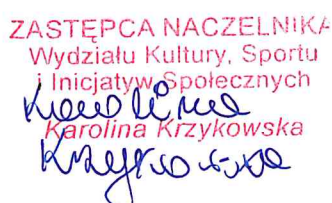 ZASTĘPCA NACZELNIKA
Wydziału Kultury, Sportu
i Inicjatyw Społecznych
Karolina
Karolina Krzykowska
Krzykowska